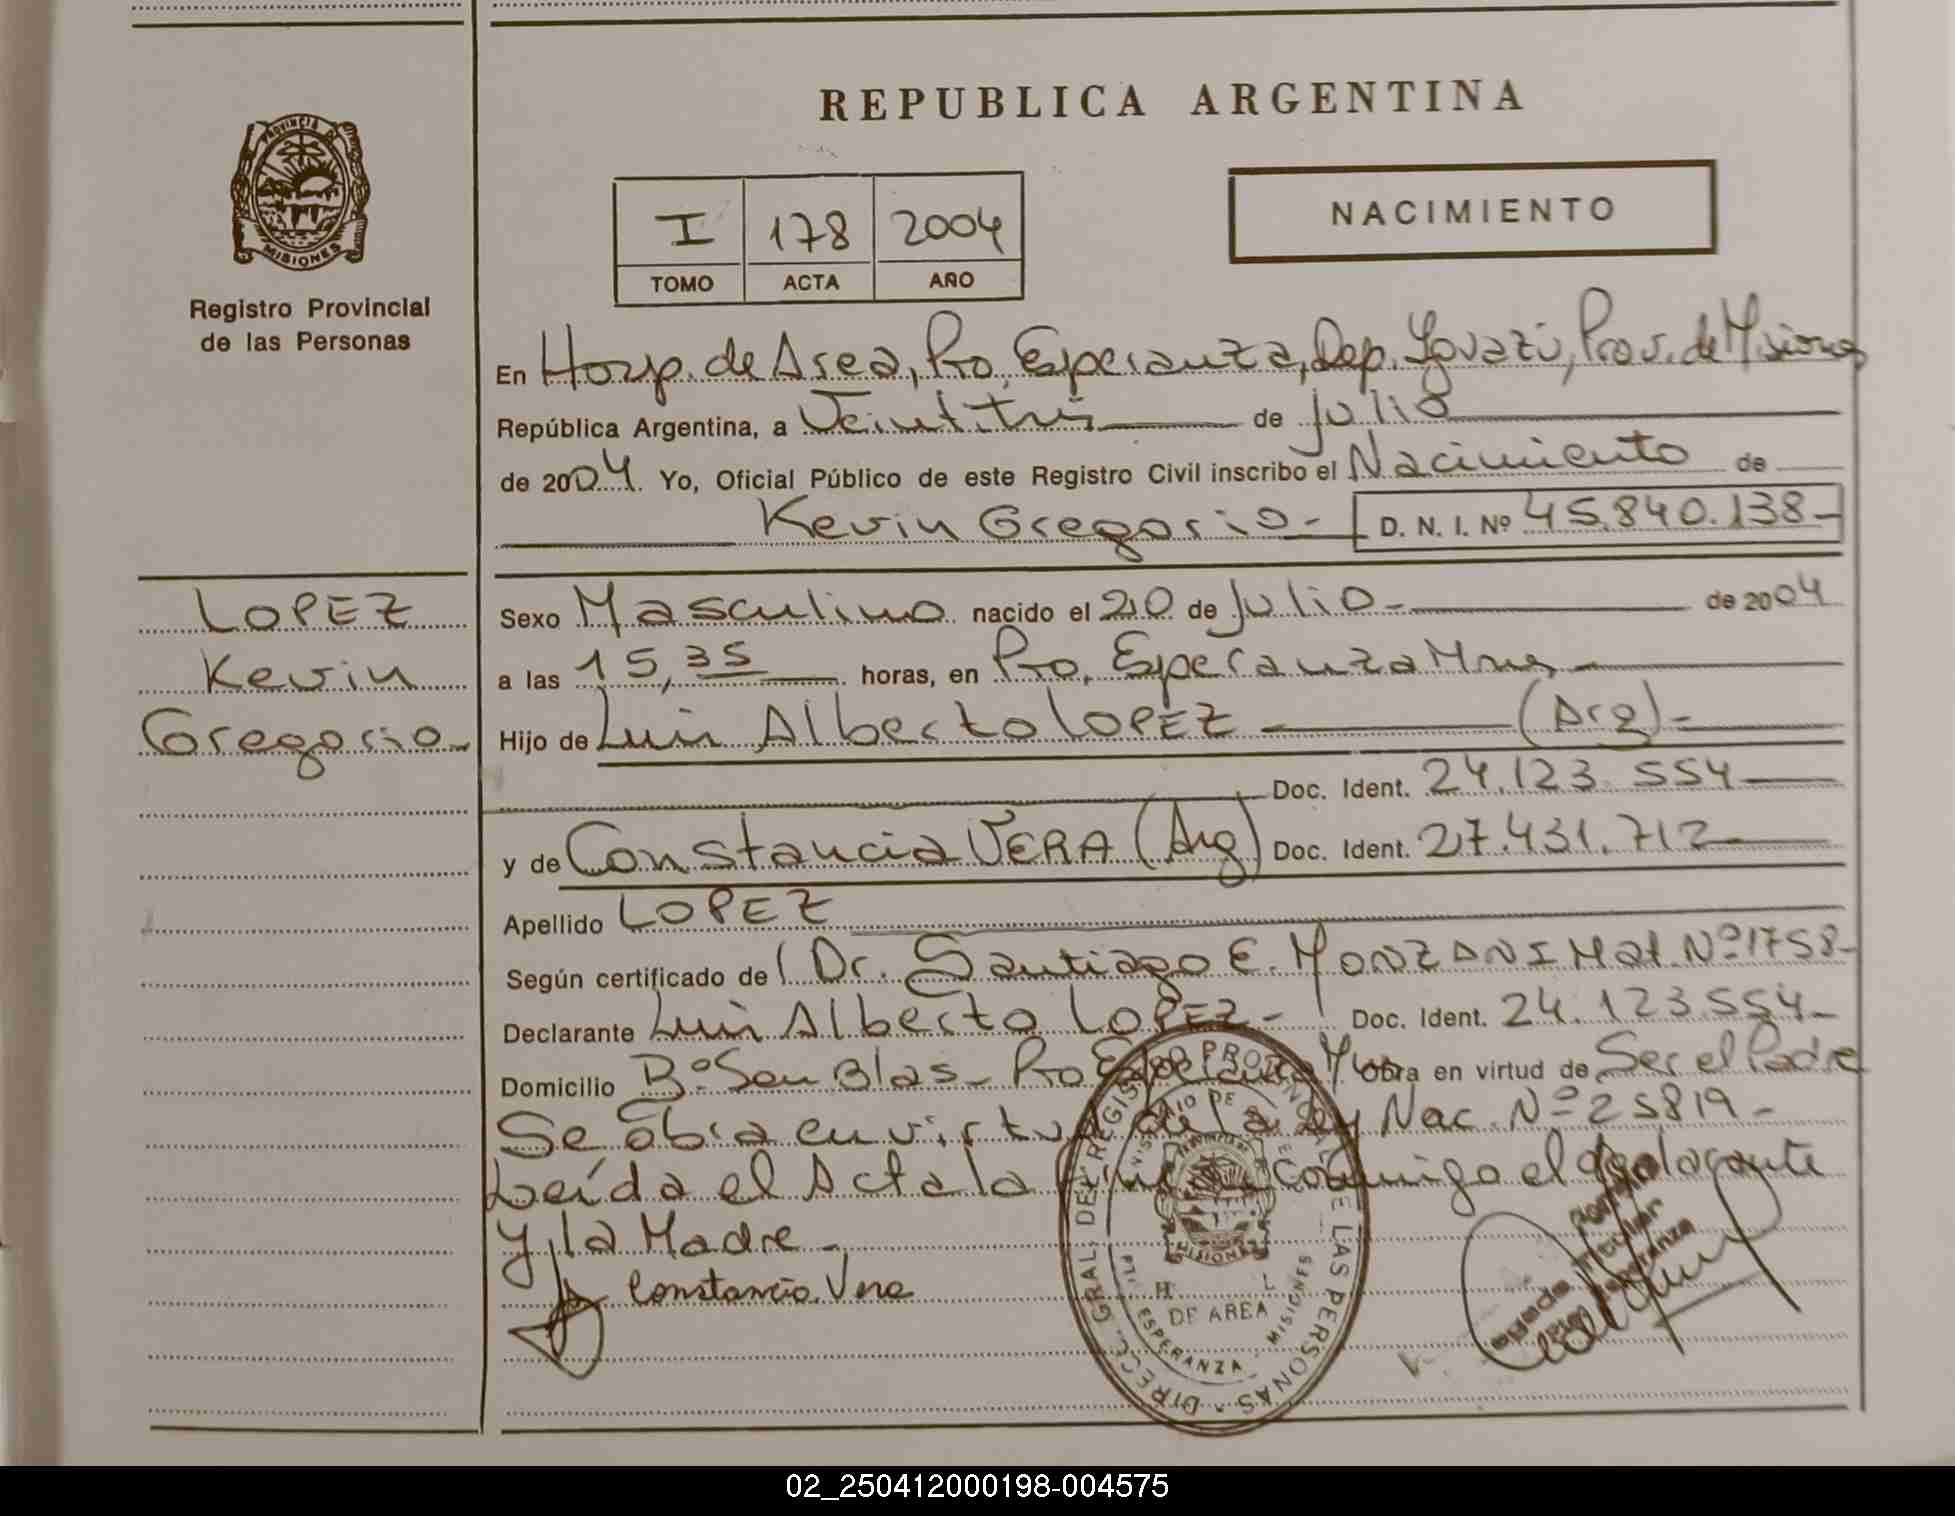 REPUBLICA ARGENTINA
PROVINCIA DE
MISIONES
Registro Provincial
de las Personas
I 178 2004
TOMO ACTA AÑO
NACIMIENTO
En Hosp. de Area, Pto. Esperanza, Dep. Iguazú, Prov. de Misiones
República Argentina, a Veintitrés de Julio
de 2004. Yo, Oficial Público de este Registro Civil inscribo el Nacimiento de
Kevin Gregorio - D. N. I. Nº 45.840.138-
LOPEZ
Kevin
Gregorio-
Sexo Masculino nacido el 20 de Julio - de 2004
a las 15,35 horas, en Pto. Esperanza Mnes -
Hijo de Luis Alberto LOPEZ (Arg)-
Doc. Ident. 24.123.554
y de Constancia VERA (Arg) Doc. Ident. 27.431.712-
Apellido LOPEZ
Según certificado de Dr. Santiago E. MONZANI Mat. Nº 1758-
Declarante Luis Alberto LOPEZ - Doc. Ident. 24.123.554-
Domicilio Bº San Blas - Pto Esperanza Obra en virtud de Ser el Padre
Se obra en virtud de la Ley Nac. Nº 25819-
Leída el Acta la conmigo el declarante
y la Madre -
Constancia Vera
DIRECC. GRAL. DEL REGISTRO PROVINCIAL DE LAS PERSONAS
MISIONES
DE AREA
ESPERANZA
MISIONES
02_250412000198-004575